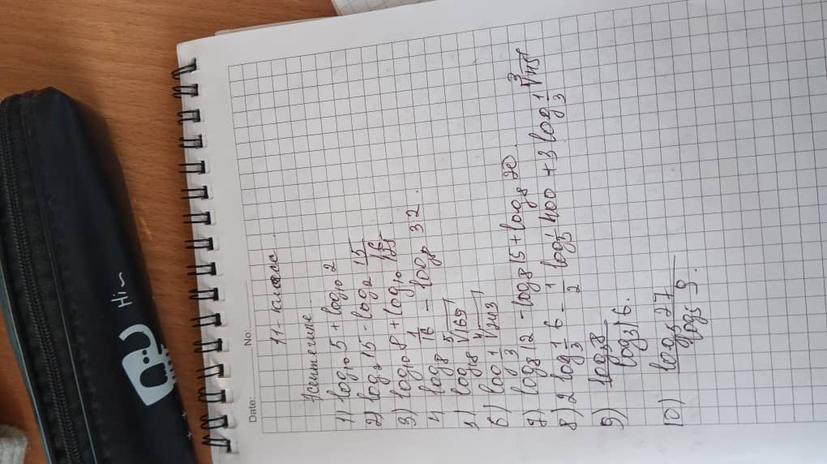 Date:
No:
11-класс.
1) log₁₀ 5 + log₁₀ 2
2) log₂ 15 - log₂ 15/16
3) log₁₀ 8 + log₁₀ 125
4) log₈ 1/16 - log₈ 32.
5) ⁵√169
6) log 1/3 ⁴√243
7) log₈ 12 - log₈ 15 + log₈ 20.
8) 2 log 1/3 6 - 1/2 log 1/3 400 + 3 log 1/3 ³√45
9) log₃ 8 / log₃ 16.
10) log₅ 27 / log₅ 9.
Hi~